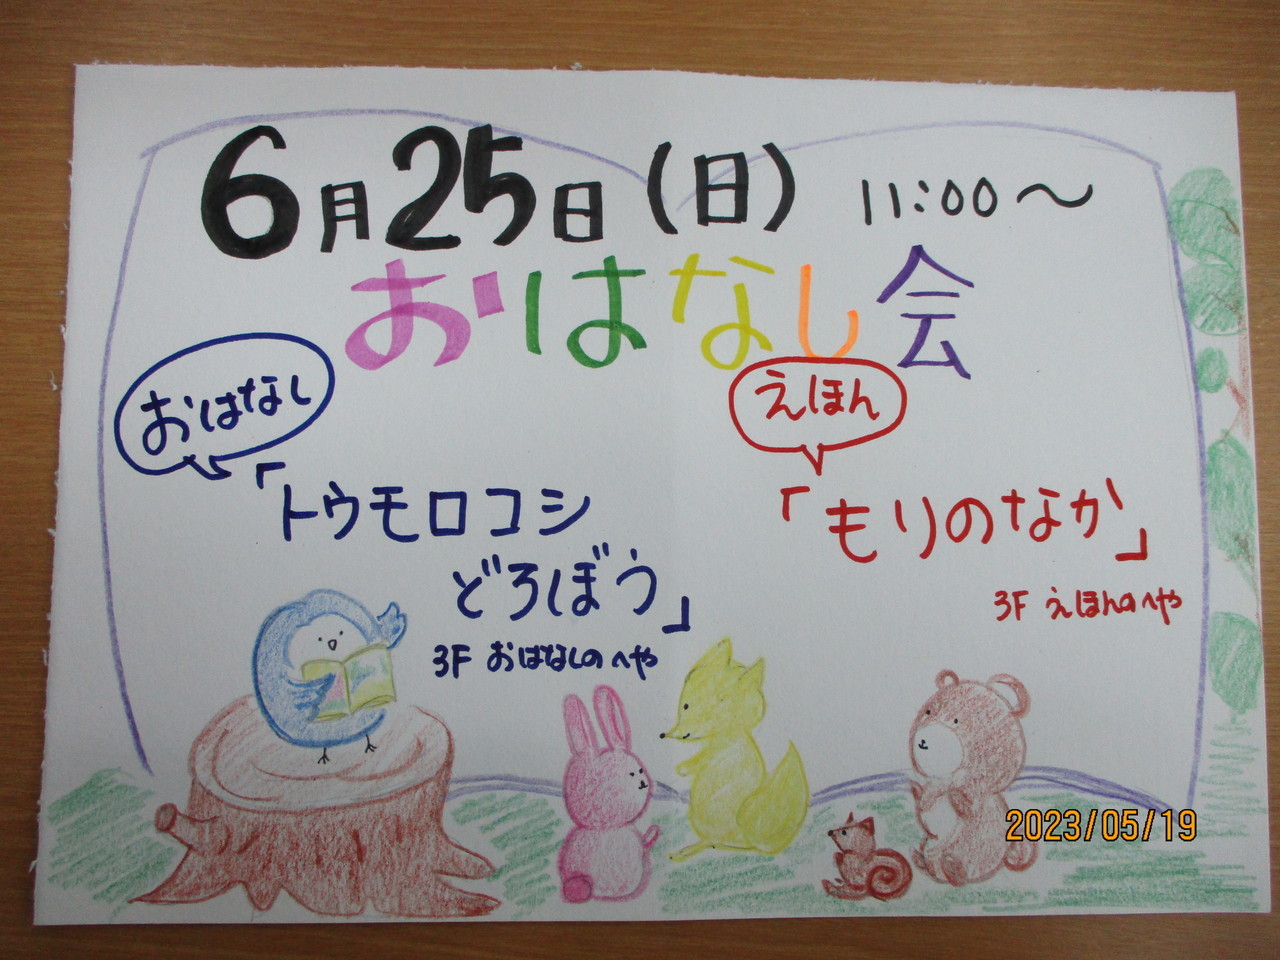 6月25日(日) 11:00～
おはなし会
おはなし
「トウモロコシ
どろぼう」
3F おはなしのへや
えほん
「もりのなか」
3F えほんのへや
2023/05/19